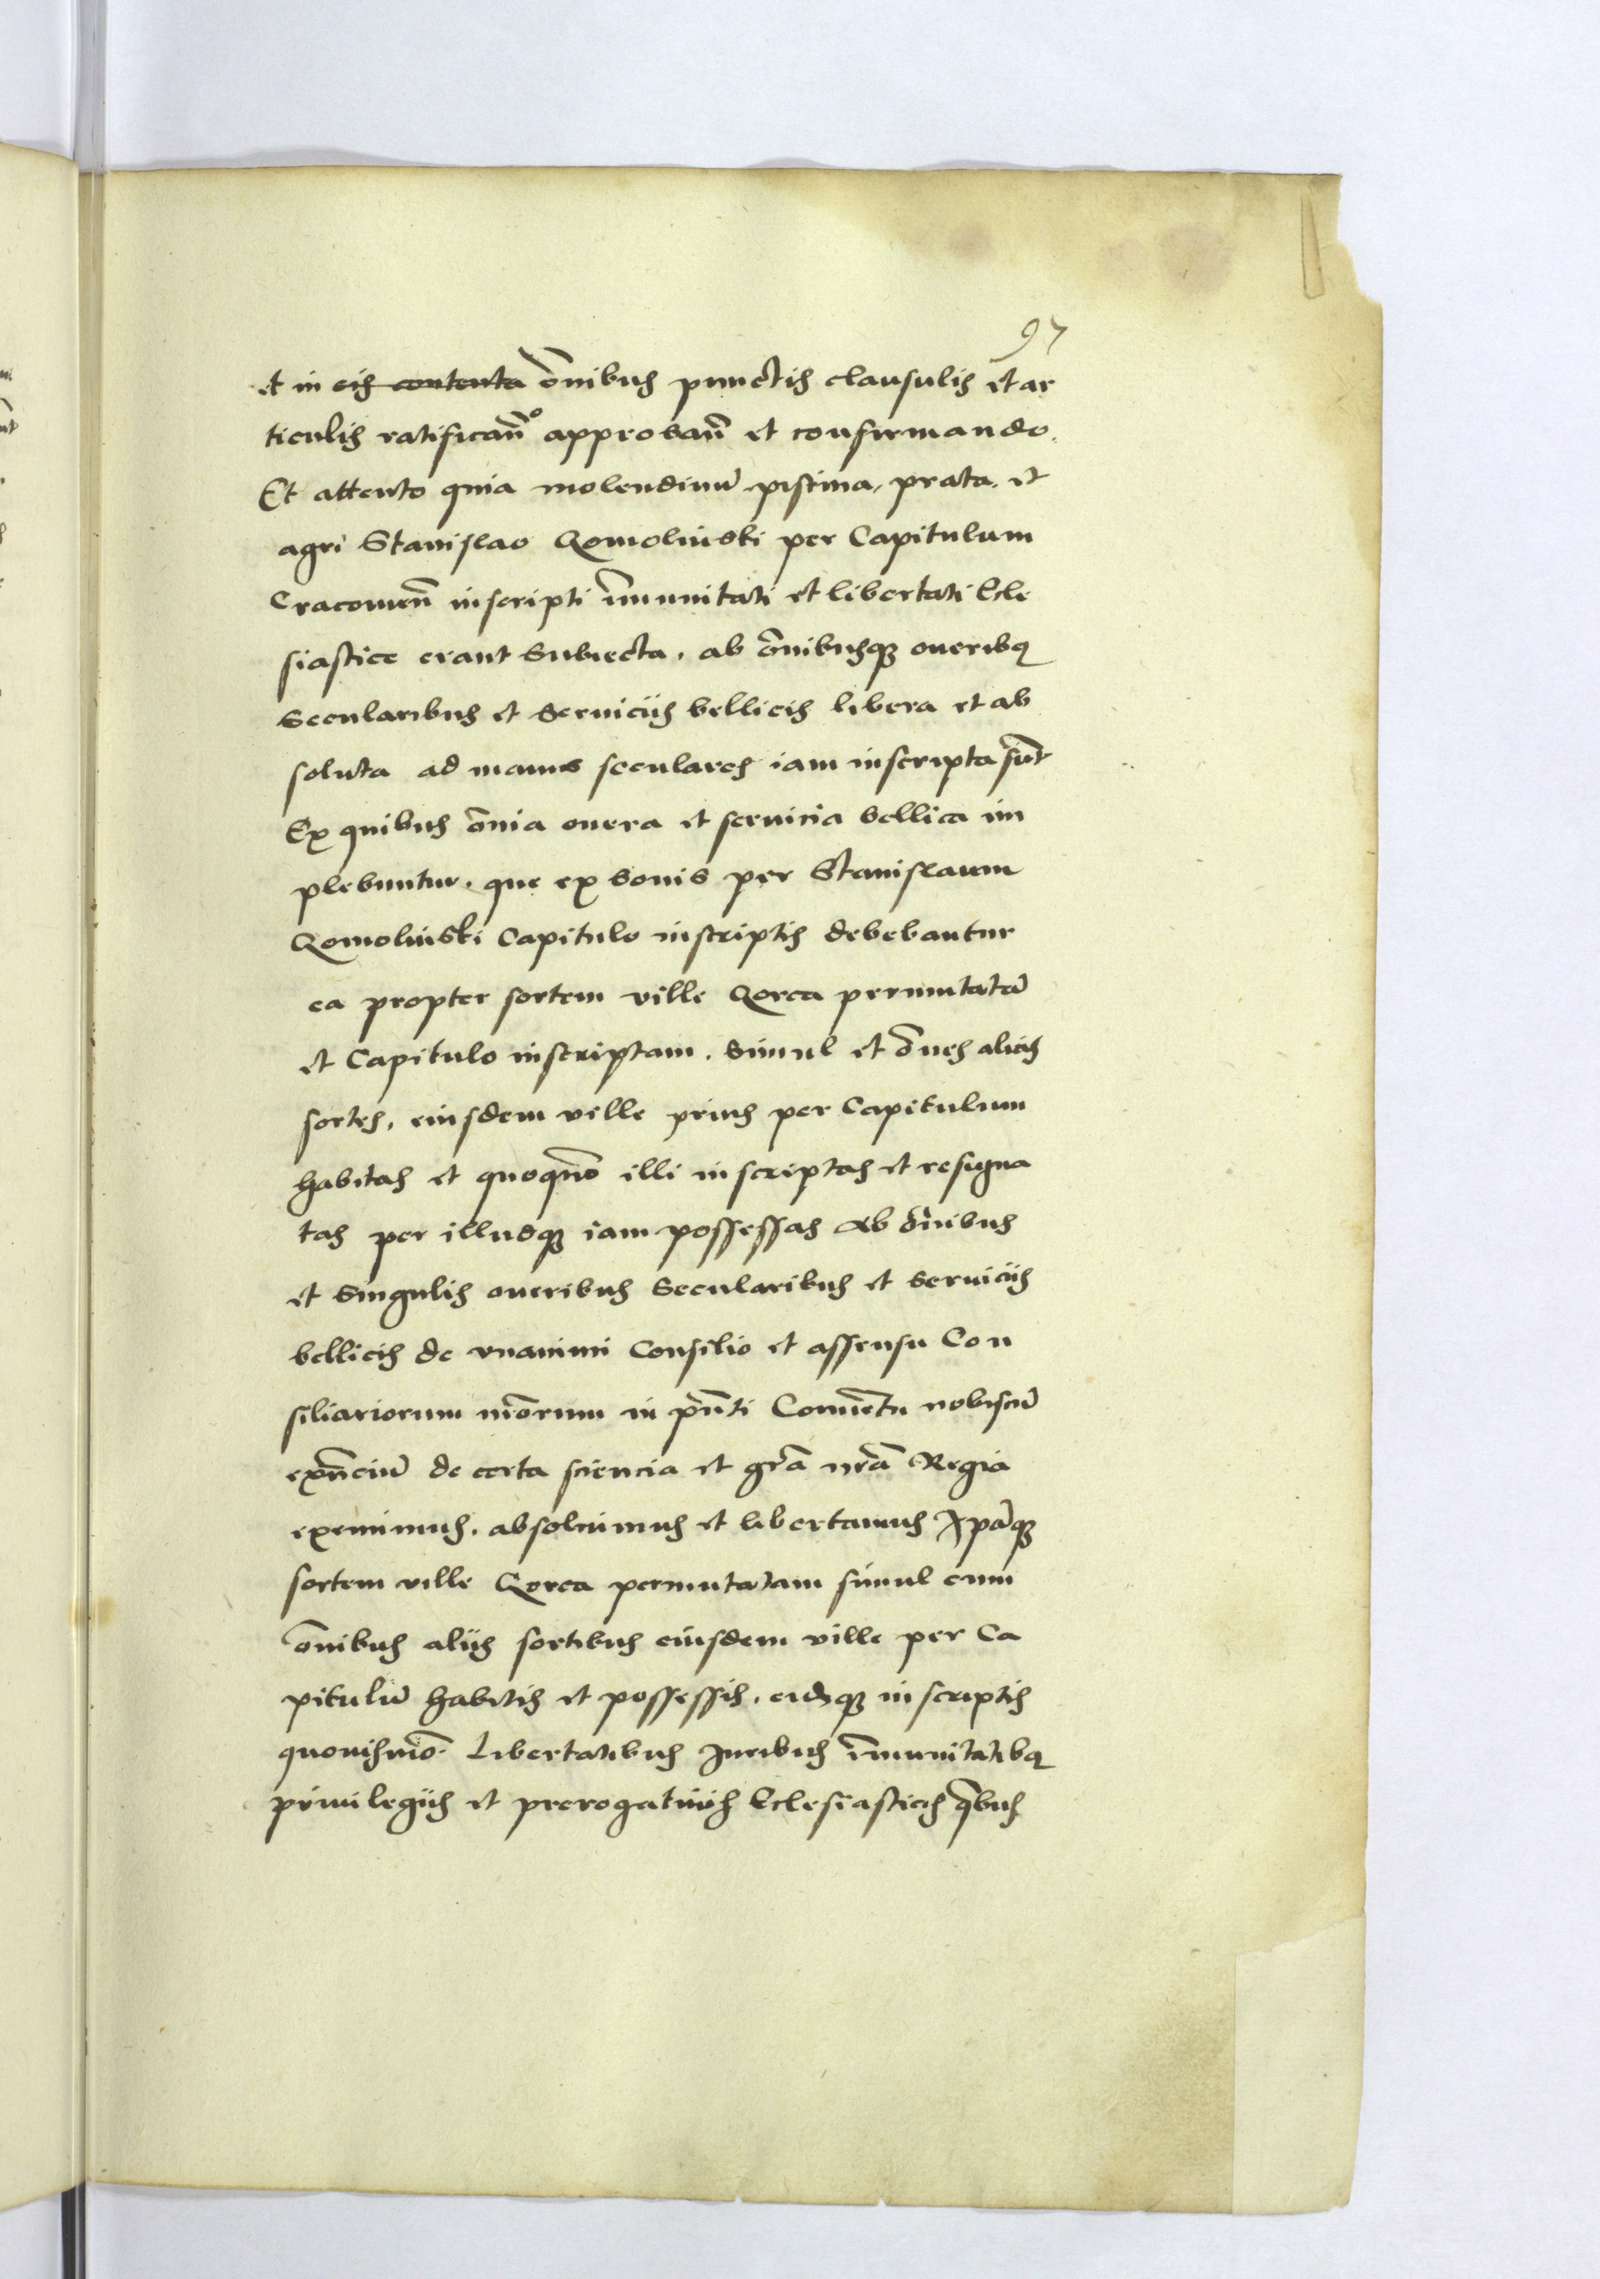 97
et in eis contenta o̅nibus punctis clausulis et ar
ticulis ratifican̅o approban̅ et confirmando.
Et attento quia molendinu̅ piscina, prata, et
agri Stanislao Gomolinski per Capitulum
Cracouien̅ inscripti i̅munitati et libertati Ecle
siastice erant subiecta, ab o̅nibusq; oneribus
secularibus et seruiciis bellicis libera et ab
soluta ad manus seculares iam inscripta su̅t
Ex quibus o̅nia onera et seruicia bellica im
plebuntur, que ex bonis per Stanislaum
Gomolinski Capitulo inscriptis debebantur
ea propter sortem ville Gorca permutata̅
et Capitulo inscriptam, simul et o̅nes alias
sortes, eiusdem ville prius per Capitulum
habitas et quoquo̅ illi inscriptas et resigna
tas per illudq; iam possessas ab o̅nibus
et singulis oneribus secularibus et seruiciis
bellicis de vnanimi Consilio et assensu Con
siliariorum n̅rorum in pn̅ti Conue̅tu nobiscu̅
exn̅ciu̅ de certa sciencia et gr̅a nr̅a Regia
eximimus, absoluimus et libertamus Ip̅aq;
sortem ville Gorca permutatam simul cum
o̅nibus aliis sortibus eiusdem ville per Ca
pitulu̅ habitis et possessis, eidq; inscriptis
quouismo̅ Libertatibus Iuribus i̅munitatibus
priuilegiis et prerogatiuis Eclesiasticis q̅bus